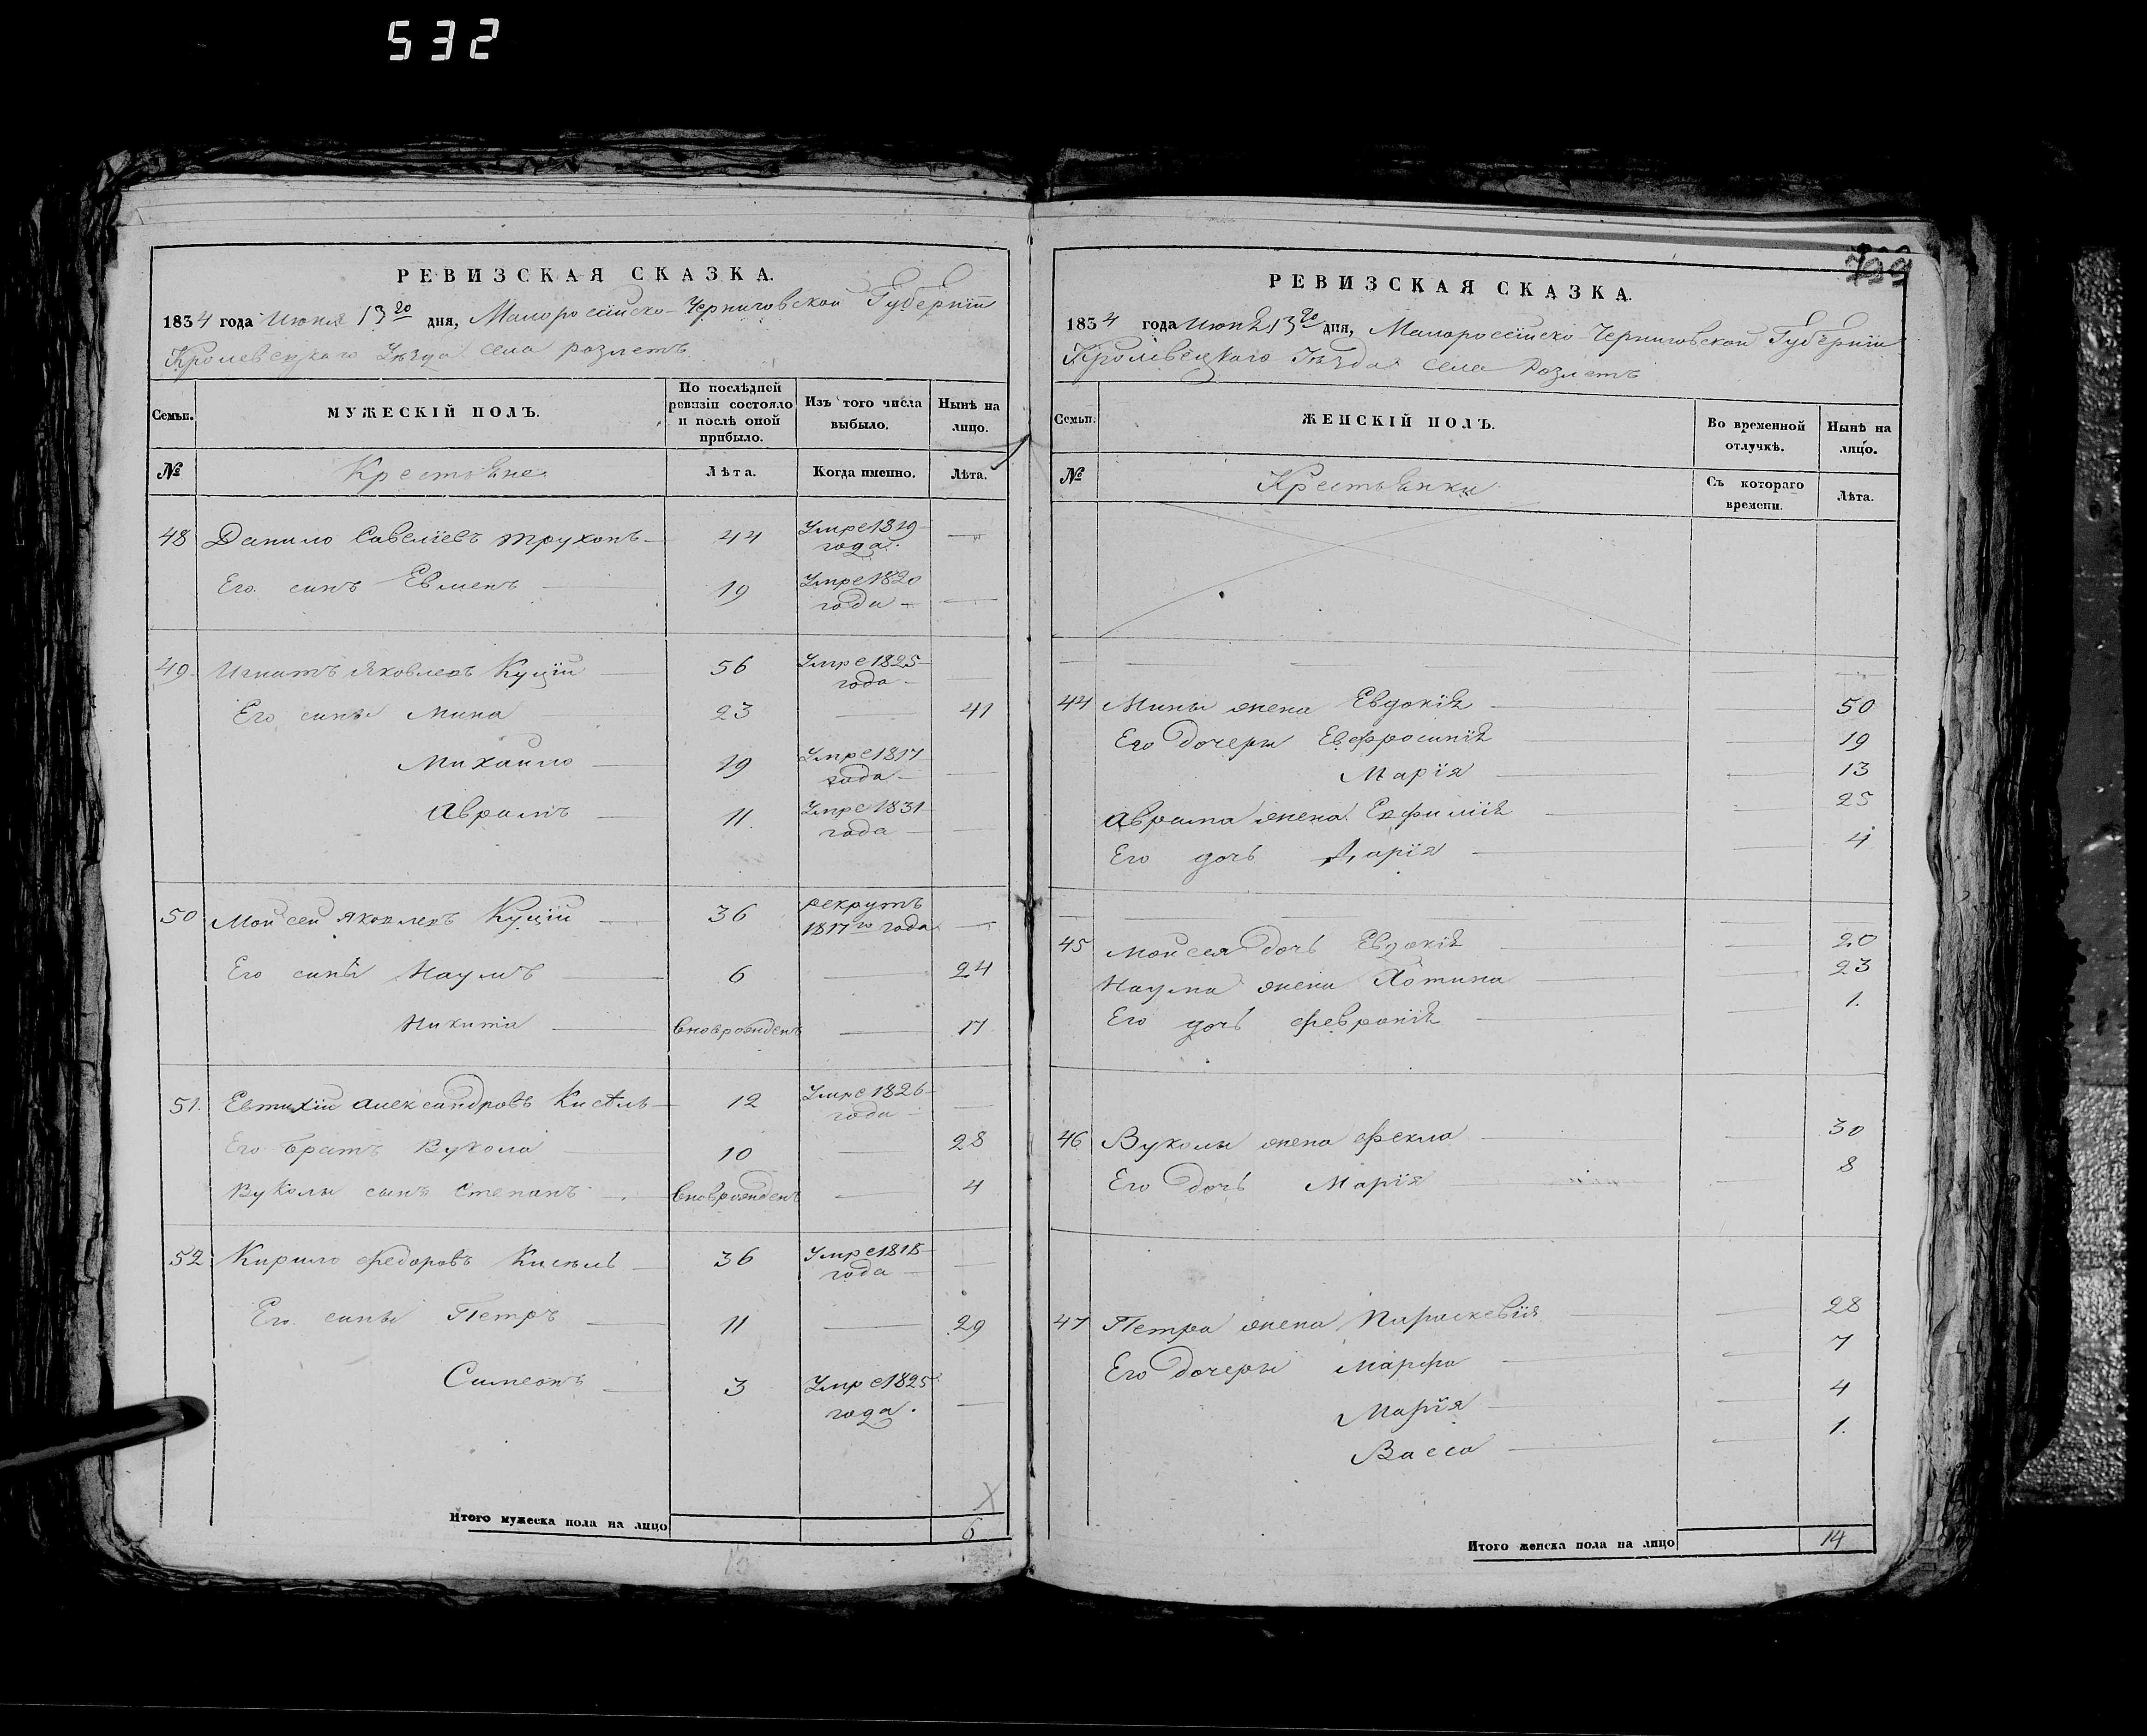 532
РЕВИЗСКАЯ СКАЗКА.
1834 года Июня 13го дня, Малоросійско-Черниговской Губерніи
Кролевецкаго Уѣзда села розлетъ
Семьи. МУЖЕСКІЙ ПОЛЪ. По послѣдней ревизіи состояло и послѣ оной прибыло. Изъ того числа выбыло. Нынѣ на лицо.
№ Крестьяне Лѣта. Когда именно. Лѣта.
48 Данило Савеліевъ трухонъ 44 Умре 1819 года. —
Его синъ Евменъ 19 Умре 1820 года —
49 Игнатъ Яковлевъ Куцій 56 Умре 1825 года
Его сины Мина 23 — 41
Михаило 19 Умре 1817 года —
Аврамъ 11 Умре 1831 года —
50 Мойсей Яковлевъ Куцій 36 рекрутъ 1817го года —
Его сины Наумъ 6 — 24
Никита вноврожденъ — 17
51. Евтихій Александровъ Кисѣль 12 Умре 1826 года —
Его братъ Вукола 10 — 28
Вуколы сынъ Степанъ вноврожденъ — 4
52 Кирило Федоровъ Кисѣль 36 Умре 1818 года —
Его сины Петръ 11 — 29
Симеонъ 3 Умре 1825 года. —
Итого мужеска пола на лицо 6
13
РЕВИЗСКАЯ СКАЗКА.
1834 года Июня 13го дня, Малоросійско Черниговской Губерніи
Кролевецкаго Уѣзда села Розлетъ
Семьи. ЖЕНСКІЙ ПОЛЪ. Во временной отлучкѣ. Нынѣ на лицо.
№ Крестьянки Съ котораго времени. Лѣта.
44 Мины жена Евдокія — 50
Его дочери Евфросинія — 19
Марія — 13
Аврама жена Евфимія — 25
Его дочь Дарія — 4
45 Мойсея дочь Евдокія — 20
Наума жена Хотина — 23
Его дочь Февронія — 1.
46 Вуколы жена Фекла — 30
Его дочь Марія — 8
47 Петра жена Параскевія — 28
Его дочери Марфа — 7
Марія — 4
Васса — 1.
Итого женска пола на лицо 14